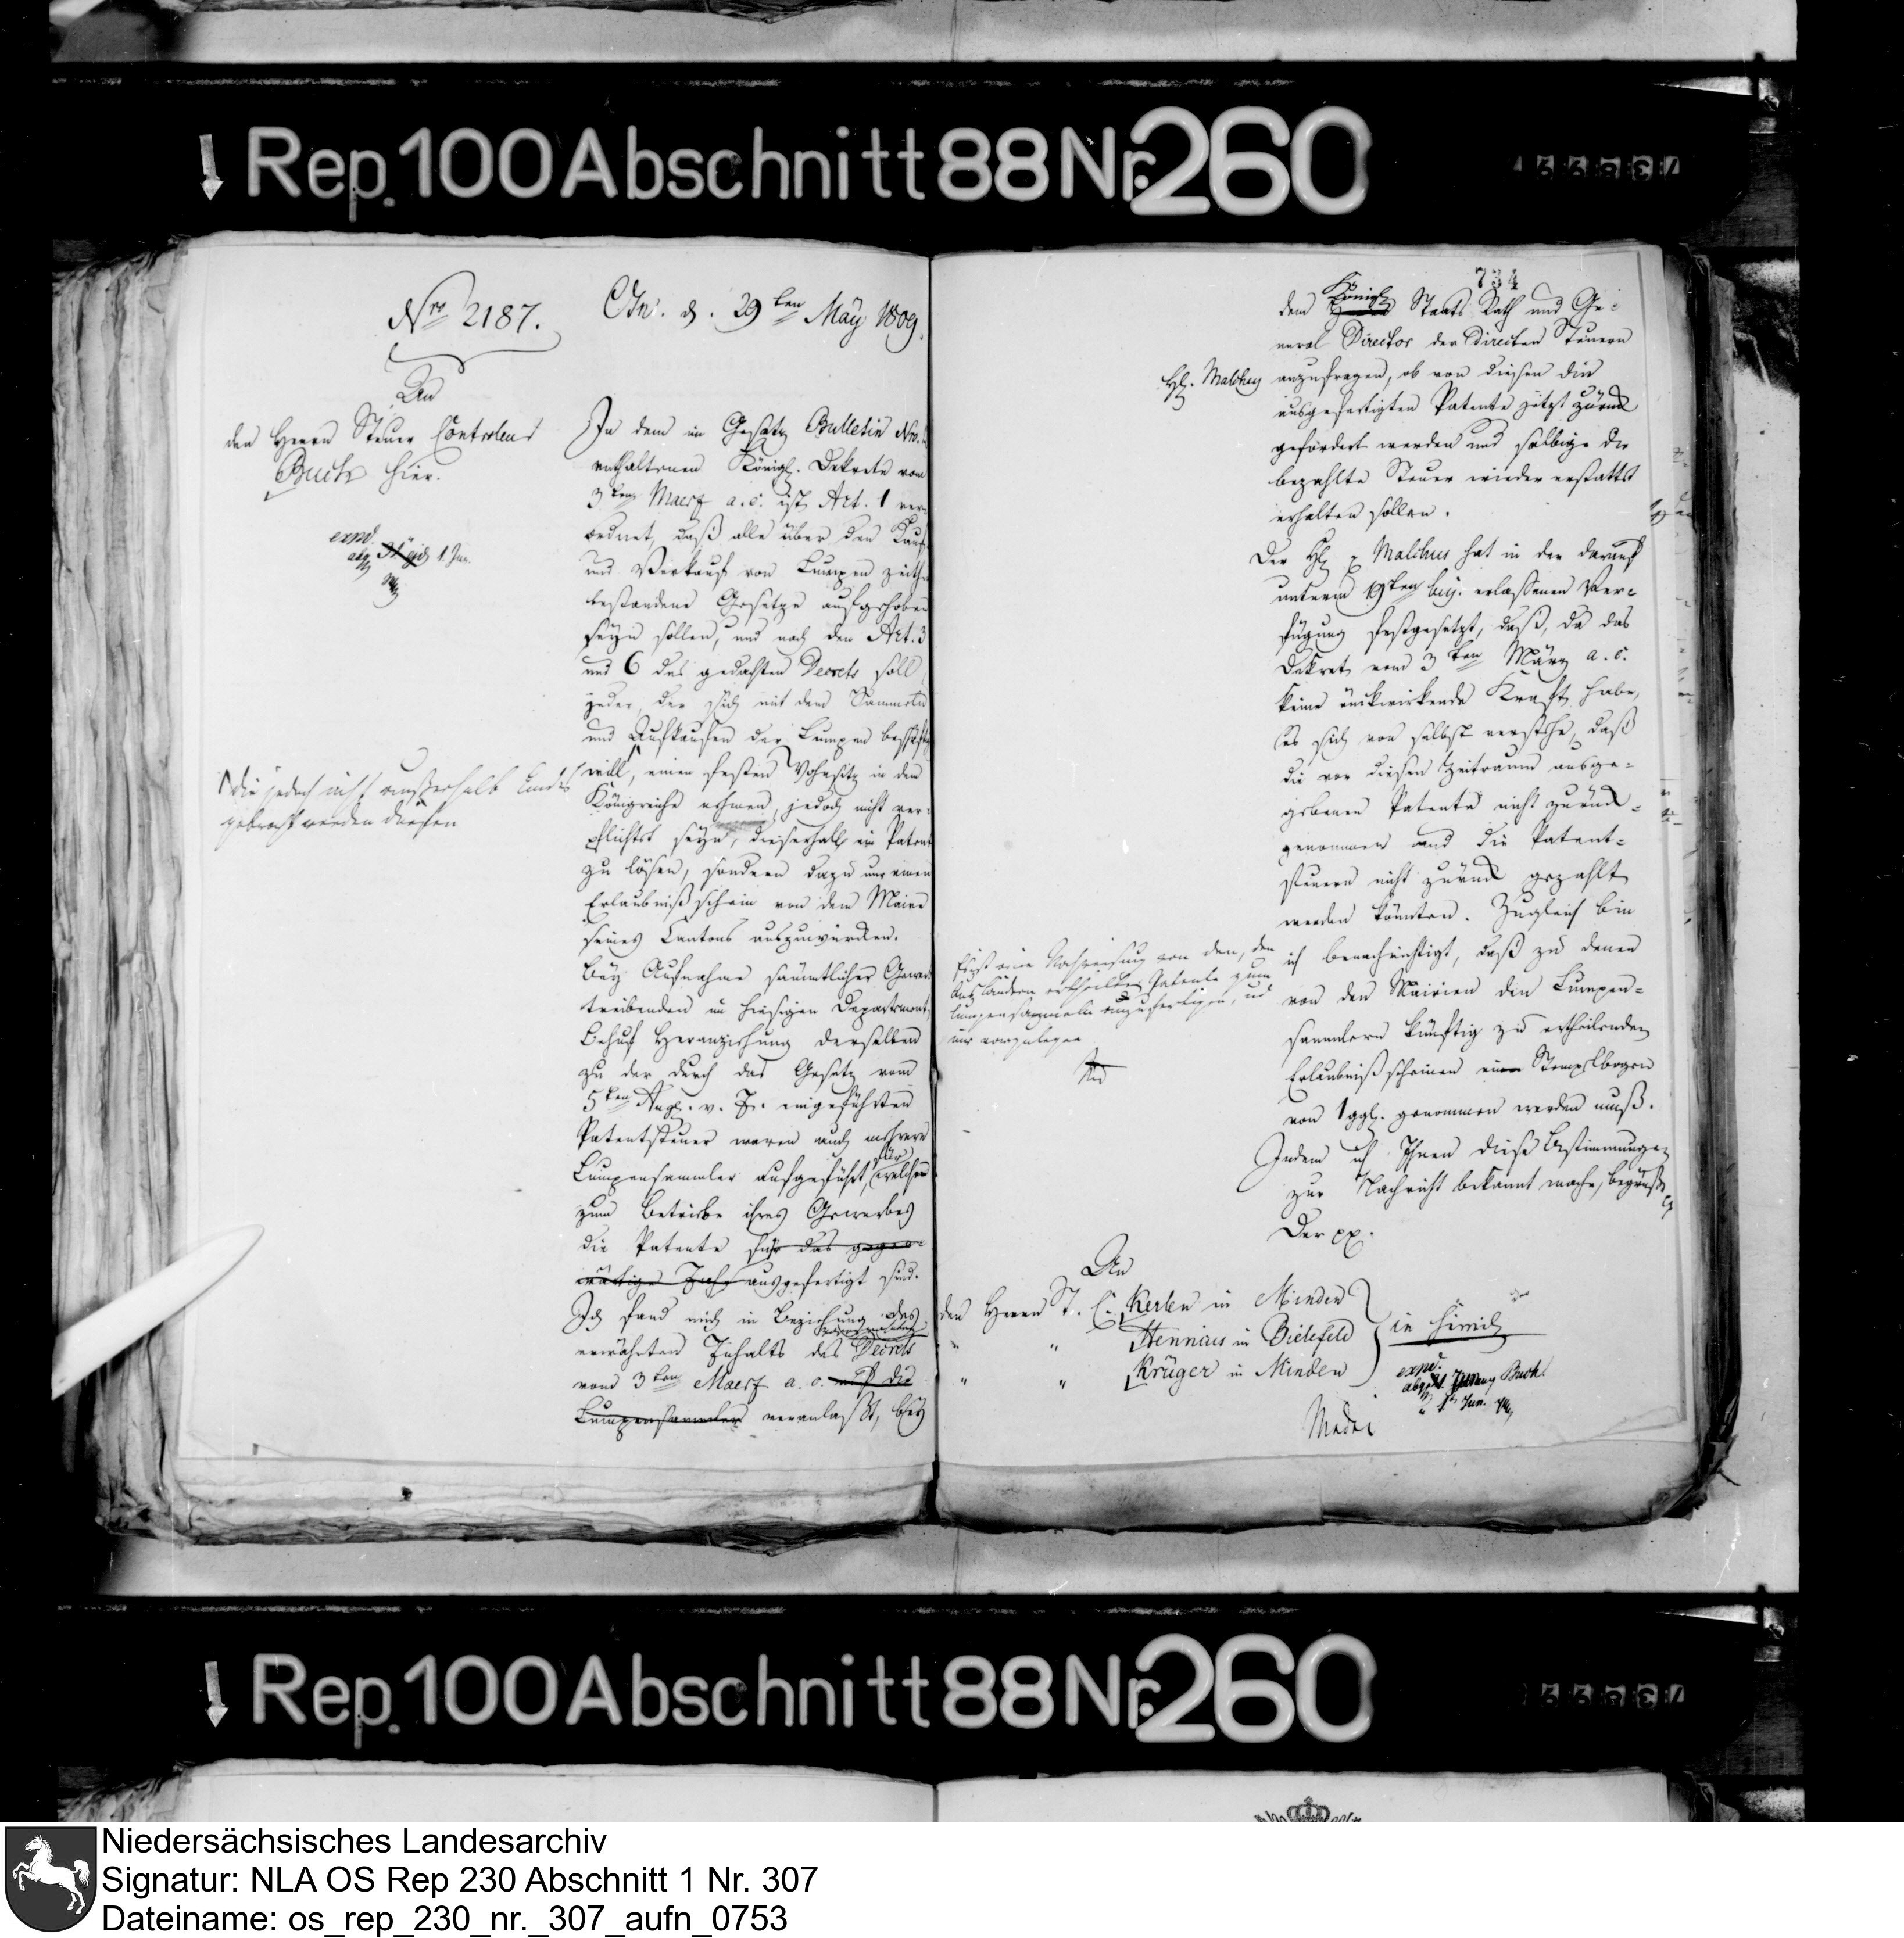 Rep. 100 Abschnitt 88 Nr. 260
Nro 2187.
Osn. d. 29ten May 1809.
An
den Herrn Steuer Controleur
Buch hier.
expd.
abg. 1. Jun.
In dem im Gesetz Bulletin Nro.
enthaltenen Königl. Dekrete vom
3ten Maerz a. c. ist Art. 1 ver-
ordnet, daß alle über den Kauf
und Verkauf von Lumpen zeither
bestandene Gesetze aufgehoben
seyn sollen, und nach den Art. 3
und 6 des gedachten Decrets soll
jeder, der sich mit dem Sammeln
und Aufkaufen der Lumpen beschäftig
die jedoch nicht außerhalb Landes
gebracht werden dürfen
will, einen festen Wohnsitz in dem
Königreiche nehmen, jedoch nicht ver-
pflichtet seyn, dieserhalb ein Patent
zu lösen, sondern dazu nur einen
Erlaubnißschein von dem Maire
seines Cantons auszuwürken.
Bey Aufnahme sämmtlicher Gewerb
treibenden im hiesigen Departement,
Behuf Heranziehung derselben
zu der durch das Gesetz vom
5ten Aug. v. J. eingeführten
Patentsteuer waren auch mehrere
Lumpensammler aufgeführt, für welche
zum Betriebe ihres Gewerbes
die Patente für das gegen-
wärtige Jahr ausgefertigt sind.
Ich fand mich in Beziehung des
erwähnten Inhalts des Decrets
vom 3ten Maerz a. c. auf die
Lumpensammler veranlaßt, bey
734
dem Königl. Staats Rath und Ge-
neral Director der directen Steuern
H. Malchus
anzufragen, ob von diesen die
ausgefertigten Patente jetzt zurück
gefordert werden und selbige die
bezahlte Steuer wieder erstattet
erhalten sollen.
Der H. p Malchus hat in der darauf
unterm 19ten huj. erlassenen Ver-
fügung festgesetzt, daß, da das
Dekret vom 3ten März a. c.
keine rückwirkende Kraft habe,
es sich von selbst verstehe, daß
die vor diesen Zeitraum ausge-
gebenen Patente nicht zurück-
genommen und die Patent-
steuern nicht zurück gezahlt
werden könnten. Zugleich bin
ich benachrichtigt, daß zu denen
von den Mairien den Lumpen-
sammlern künftig zu ertheilenden
Erlaubnißscheinen ein Stempelbogen
von 1 ggl. genommen werden muß.
Indem ich Ihnen diese Bestimmungen
zur Nachricht bekannt mache, begrüße
Der pp.
ist eine Nachweisung von den, den
Ausländern ertheilten Patente zum
Lumpensammeln anzufertigen, und
mir vorzulegen
An
den Herrn St. C. Kerlen in Minden
" " Hennius in Bielefeld
" " Krüger in Minden
in simili
expd.
Buch.
Jun.
Rep. 100 Abschnitt 88 Nr. 260
Niedersächsisches Landesarchiv
Signatur: NLA OS Rep 230 Abschnitt 1 Nr. 307
Dateiname: os_rep_230_nr._307_aufn_0753